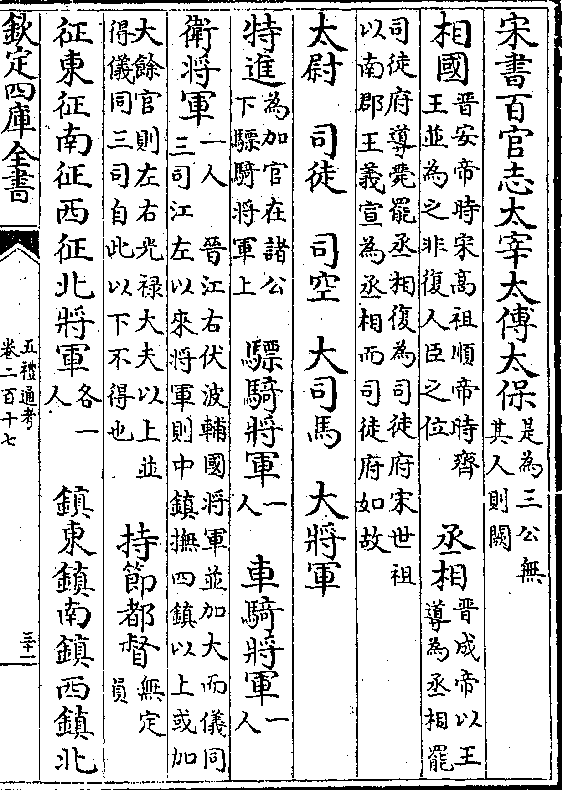 宋書百官志太宰太傅太保是為三公無其人則闕
相國晉安帝時宋高祖順帝時齊王並為之非復人臣之位　丞相晉成帝以王導為丞相罷
司徒府導薨罷丞相復為司徒府宋世祖以南郡王義宣為丞相而司徒府如故
太尉　司徒　司空　大司馬　大將軍
特進為加官在諸公下驃騎將軍上　驃騎將軍一人　車騎將軍一人
衛將軍一人　晉江右伏波輔國將軍並加大而儀同三司江左以來將軍則中鎮撫四鎮以上或加
大餘官則左右光祿大夫以上並得儀同三司自此以下不得也　持節都督無定員
征東征南征西征北將軍各一人　鎮東鎮南鎮西鎮北
欽定四庫全書
五禮通考
卷二百十七
三十二